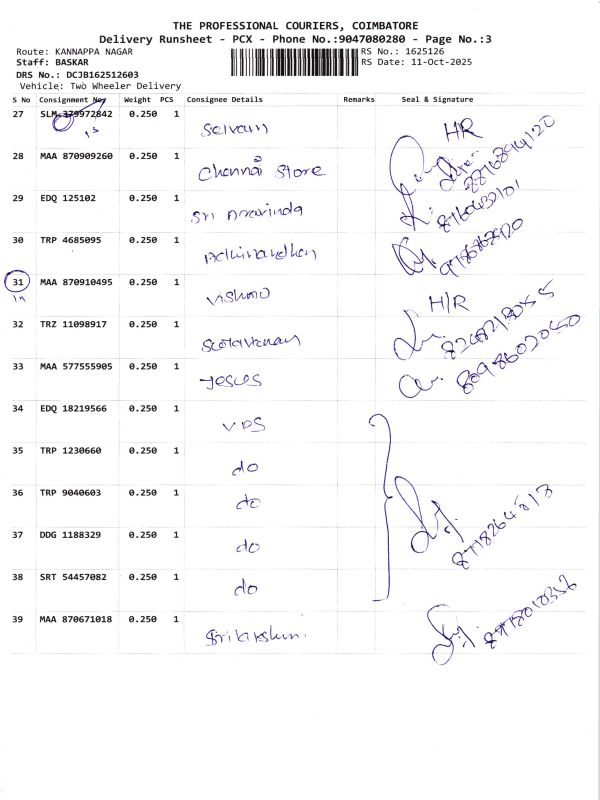 THE PROFESSIONAL COURIERS, COIMBATORE
Delivery Runsheet - PCX - Phone No.:9047080280 - Page No.:3
Route: KANNAPPA NAGAR RS No.: 1625126
Staff: BASKAR RS Date: 11-Oct-2025
DRS No.: DCJB162512603
Vehicle: Two Wheeler Delivery
S No Consignment No Weight PCS Consignee Details Remarks Seal & Signature
27 SLM 379972842 0.250 1 Selvam HR
28 MAA 870909260 0.250 1 Chennai Store
29 EDQ 125102 0.250 1 Sri Aravinda
30 TRP 4685095 0.250 1
31 MAA 870910495 0.250 1 Vishnu H/R
32 TRZ 11098917 0.250 1
33 MAA 577555905 0.250 1 Jesus 8098602050
34 EDQ 18219566 0.250 1 VPS
35 TRP 1230660 0.250 1 do
36 TRP 9040603 0.250 1 do
37 DDG 1188329 0.250 1 do
38 SRT 54457082 0.250 1 do
39 MAA 870671018 0.250 1